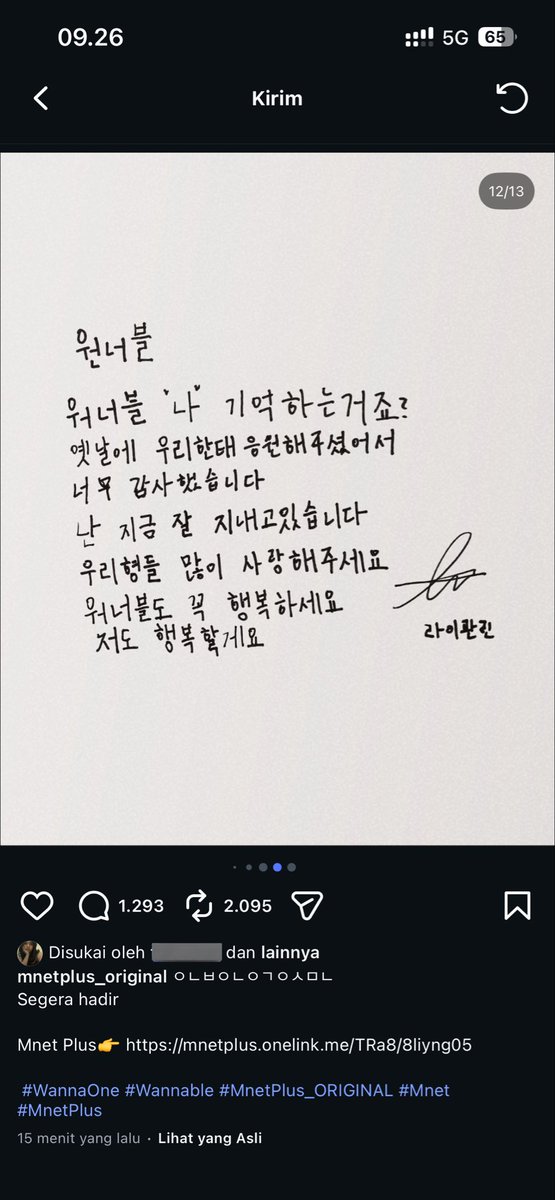 09.26
5G
65
Kirim
12/13
원너블
워너블 "나" 기억하는거죠?
옛날에 우리한태 응원해주셨어서
너무 감사했습니다
난 지금 잘 지내고있습니다
우리형들 많이 사랑해주세요
워너블도 꼭 행복하세요
저도 행복할게요
라이관린
1.293
2.095
Disukai oleh
dan lainnya
mnetplus_original ㅇㄴㅂㅇㄴㅇㄱㅇㅅㅁㄴ
Segera hadir
Mnet Plus👉 https://mnetplus.onelink.me/TRa8/8liyng05
#WannaOne #Wannable #MnetPlus_ORIGINAL #Mnet
#MnetPlus
15 menit yang lalu · Lihat yang Asli